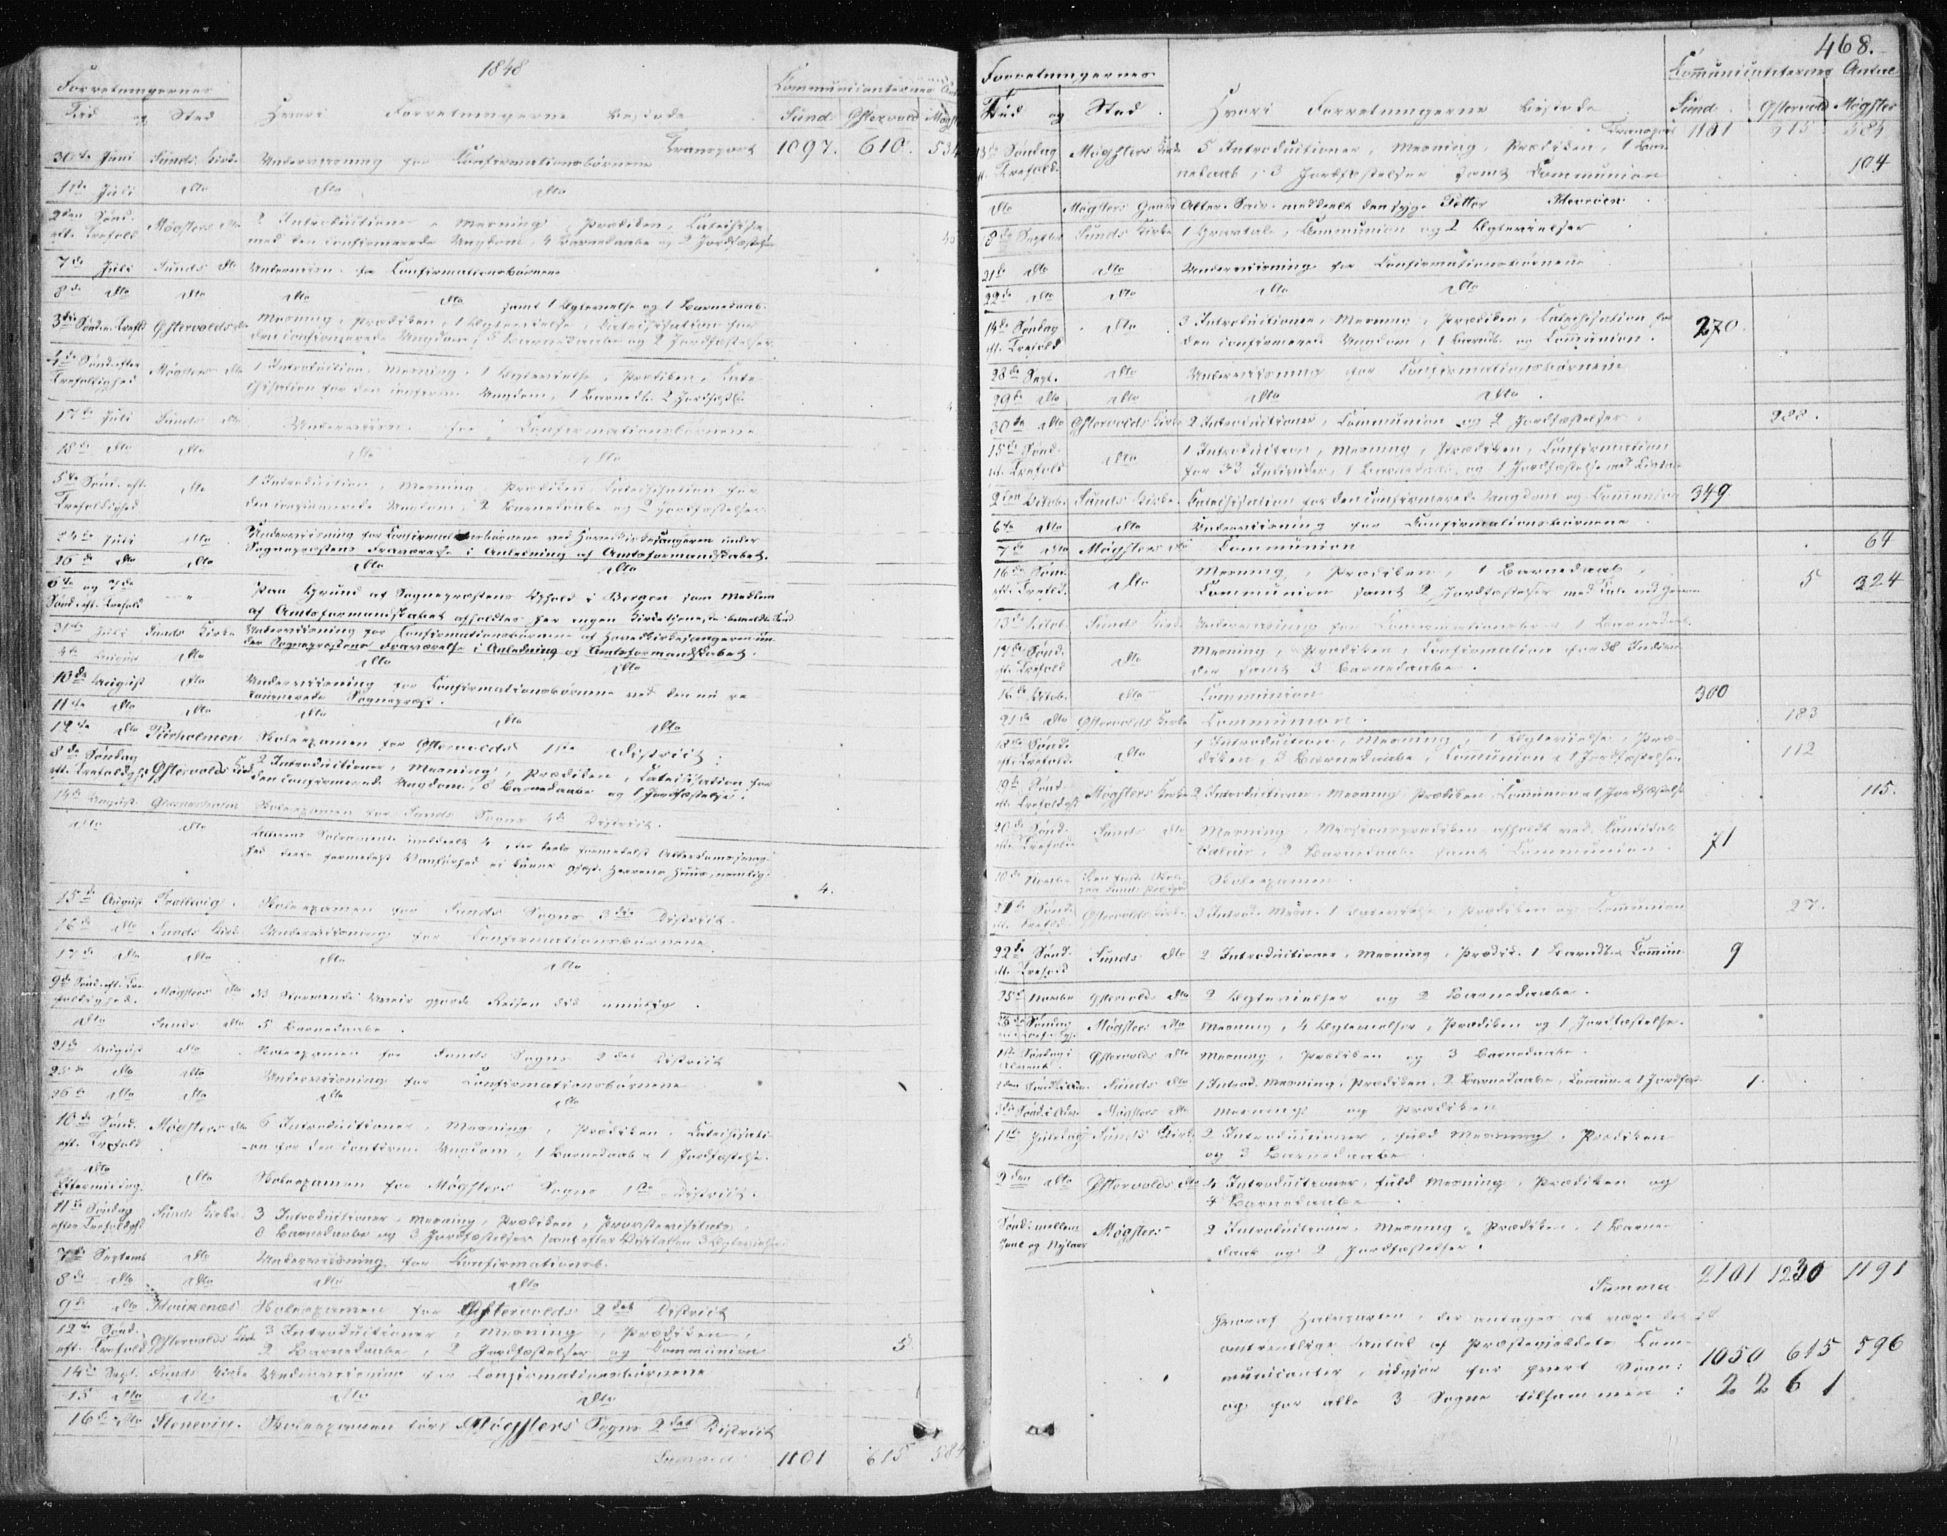 1848
Forretningernes
Communicanternes
Tid og Sted
Hvori Forretningerne bestode
Sund. Østervold Møgster
Transport 1097. 610. 534
30te Juni Sunds Kirke Underviisning for Confirmationsbørnene
1ste Juli dto dto dto
2den Sønd. eft. Trefold Møgsters dto 2 Introductione, Messning, Prædiken, Catechisa.
med den confirmerede Ungdom, 4 Barnedaabe og 2 Jordfæstelser
7de Juli Sunds dto Underviisn. for Confirmationsbørnene
8de dto dto dto dto samt 1 Egtevielse og 1 Barnedaab.
3die Sønd. eft. Trefold Østervolds dto Messning, Prædiken, 1 Egtevielse, Catechisation for
den confirmerede Ungdom, 5 Barnedaabe og 2 Jordfæstelser
4de Sønd. efter Trefoldighed Møgsters dto 1 Introduction, Messning, 1 Egtevielse, Prædiken, Cate-
chisation for den confirm. Ungdom, 1 Barned. 2 Jordfæst.
17de Juli Sunds dto Underviisn. for Confirmationsbørnene
18de dto dto dto dto
5te Sønd. eft. Trefoldighed dto 1 Introduction, Messning, Prædiken, Catechisation for
den confirmerede Ungdom, 2 Barnedaabe og 2 Jordfæstelser
24de Juli dto Underviisning for Confirmationsbørnene ved Hovedkirkesangeren under
Sognepræstens Fraværelse i Anledning af Amtsformandskabet.
26de dto dto dto dto
6te og 7de Sønd. eft. Trefold " Paa Grund af Sognepræstens Ophold i Bergen som Medlem
af Amtsformandskabet afholdtes her ingen Kirketjeneste
31te Juli Sunds Kirke Underviisning for Confirmationsbørnene af Hovedkirkesangeren un-
4de August dto der Sognepræstens Fraværelse i Anledning af Amtsformandskabet.
dto dto
10de August dto Underviisning for Confirmationsbørnene ved den nu re-
tournerede Sognepræst.
11te dto dto dto dto dto
12te dto Kirholmen Skoleexamen for Østervolds 1ste District.
8de Søndag eft. Trefoldighed Østervolds Kirke 2 Introductioner, Messning, Prædiken, Catechisation for
den confirmerede Ungdom, 6 Barnedaabe og 1 Jordfæstelse.
14de August Skoleexamen for Sunds Sogns 4de District.
dto dto Alterens Sacramente meddeelt 4, der deels formedelst Alderdomssvag-
hed deels formedelst Vanførhed ei kunne gjæste Herrens Huus, nemlig. 4.
15de August Trællevig. Skoleexamen for Sunds Sogns 3die District.
16de dto Sunds Kirke Underviisning for Confirmationsbørnene.
17de dto dto dto dto
9de Sønd. eft. Tre-foldighed. Møgsters dto Et stormende Veir gjorde Reisen did umulig.
dto Sunds dto 5 Barnedaabe.
21de August dto Skoleexamen for Sunds Sogns 2det District
25de dto dto Underviisning for Confirmationsbørnene
26de dto dto dto dto
10de Sønd. eft. Trefold Møgsters dto 6 Introductioner, Messning, Prædiken, Catechisati-
on for den confirm. Ungdom, 1 Barnedaab & 1 Jordfæstelse.
dto Eftermiddag. dto Skoleexamen for Møgsters Sogns 1ste District.
11te Søndag efter Trefoldighd Sunds Kirke 3 Introductioner, Messning, Prædiken, Provstevisitats,
6 Barnedaabe og 3 Jordfæstelser samt efter Visitatsen 3 Egtevielser
7de Septemb. dto Underviisning for Confirmationsb.
8de dto dto dto dto
9de dto Skoleexamen for Østervolds 2det District
12te Sønd. eft. Trefold Østervolds Kirke 3 Introductioner, Messning, Prædiken,
2 Barnedaabe, 2 Jordfæstelser og Communion 5
14de Sept. Sunds Kirke Underviisning for Confirmationsbørnene
15 dto dto dto dto
16de dto Stenevig. Skoleexamen for Møgsters Sogns 2det District
Summa 1101 615 584
468.
Forretningernes
Communicanternes Antal
Tid og Sted. Hvori Forretningerne bestode Sund. Østervold Møgster
Transport 1101 615 584
13de Søndag eft. Trefold. Møgsters Kirke 5 Introductioner, Messning, Prædiken, 1 Bar-
nedaab, 3 Jordfæstelser samt Communion 104
dto Møgsters Gaard Alter. Sacr. meddeelt den syge Petter
18de Septbr Sunds Kirke 1 Gravtale, Communion og 2 Egtevielser
21de dto dto Underviisning for Confirmationsbørnene
22de dto dto dto dto
14de Søndag eft. Trefold dto 3 Introductioner, Messning, Prædiken, Catechisation for
den confirmerede Ungdom, 1 Barned. og Communion. 270.
28de Sept. dto Underviisning for Confirmationsbørnene
29de dto dto dto dto.
30te dto Østervolds Kirke 2 Introductioner, Communion og 2 Jordfæstelser. 288.
15de Sønd. eft. Trefold dto 1 Introduction, Messning, Prædiken, Confirmation
for 33 Individer, 1 Barnedaab, og 1 Jordfæstelse med Ligtale
2den Octobr Sunds Kirke Catechisation for den confirmerede Ungdom og Communion 349
6te dto dto Underviisning for Confirmationsbørnene.
7de dto Møgsters dto Communion 64
16de Sønd. eft. Trefold. dto Messning, Prædiken, 1 Barnedaab,
Communion samt 2 Jordfæstelser med Tale ved Graven 5 324
13de Octob. Sunds Kirke Underviisning for Confirmationsbørn & 1 Barnedaab.
17de Sønd. eft. Trefold dto Messning, Prædiken, Confirmation for 38 Indivi-
der samt 3 Barnedaabe.
16de Octob. dto Communion 300
21de dto Østervolds Kirke Communion. 183
18de Sønd. eft. Trefold. dto 1 Introduction, Messning, 1 Egtevielse, Præ-
diken, 3 Barnedaabe, Communion & 1 Jordfæstelse. 112
19de Sønd. eft. Trefoldighd Møgsters Kirke 2 Introductioner, Messning, Prædiken Communion & 1 Jordfæstelse 115.
20de Sønd. eft. Trefold Sunds dto Messning, Missionsprædiken afholdt ved Candidat
2 Barnedaabe samt Communion. 71
10de Novbr Den faste Skole Skoleexamen.
21de Sønd. eft. Trefold Østervolds Kirke 3 Introd. Messn. 1 Egtevielse, Prædiken og Communion 27.
22de Sønd. eft. Trefold Sunds dto 2 Introductioner, Messning, Prædik. 1 Barnedb. & Commun. 9
25de Novbr Østervolds dto 2 Egtevielser og 2 Barnedaabe.
23de Søndag Møgsters dto Messning, 4 Egtevielser, Prædiken og 1 Jordfæstelse.
1ste Søndag i Advent. Østervolds dto Messning, Prædiken og 3 Barnedaabe.
2den Sønd. i Adv. Sunds dto 1 Introd. Messning, Prædiken, 2 Barnedaabe, Commun. & 1 Jordfæs. 1.
3die Sønd. i Adv. Møgsters dto Messning og Prædiken
1ste Juledag Sunds Kirke 2 Introductioner, fuld Messning, Prædiken
og 3 Barnedaabe
2den dto Østervolds dto 4 Introductioner, fuld Messning, Prædiken og
4 Barnedaabe.
Sønd. mellem Juul og Nytaar Møgsters 2 Introductioner, Messning, Prædiken, 1 Barne-
daab og 2 Jordfæstelser.
Summa 2101 1230 1191
Hvoraf Halvparten, der antages at være det or-
dentlige Antal af Præstegjeldets Com-
municanter, udgjør for hvert Sogn: 1050 615 596
og for alle 3 Sogne tilsammen: 2261